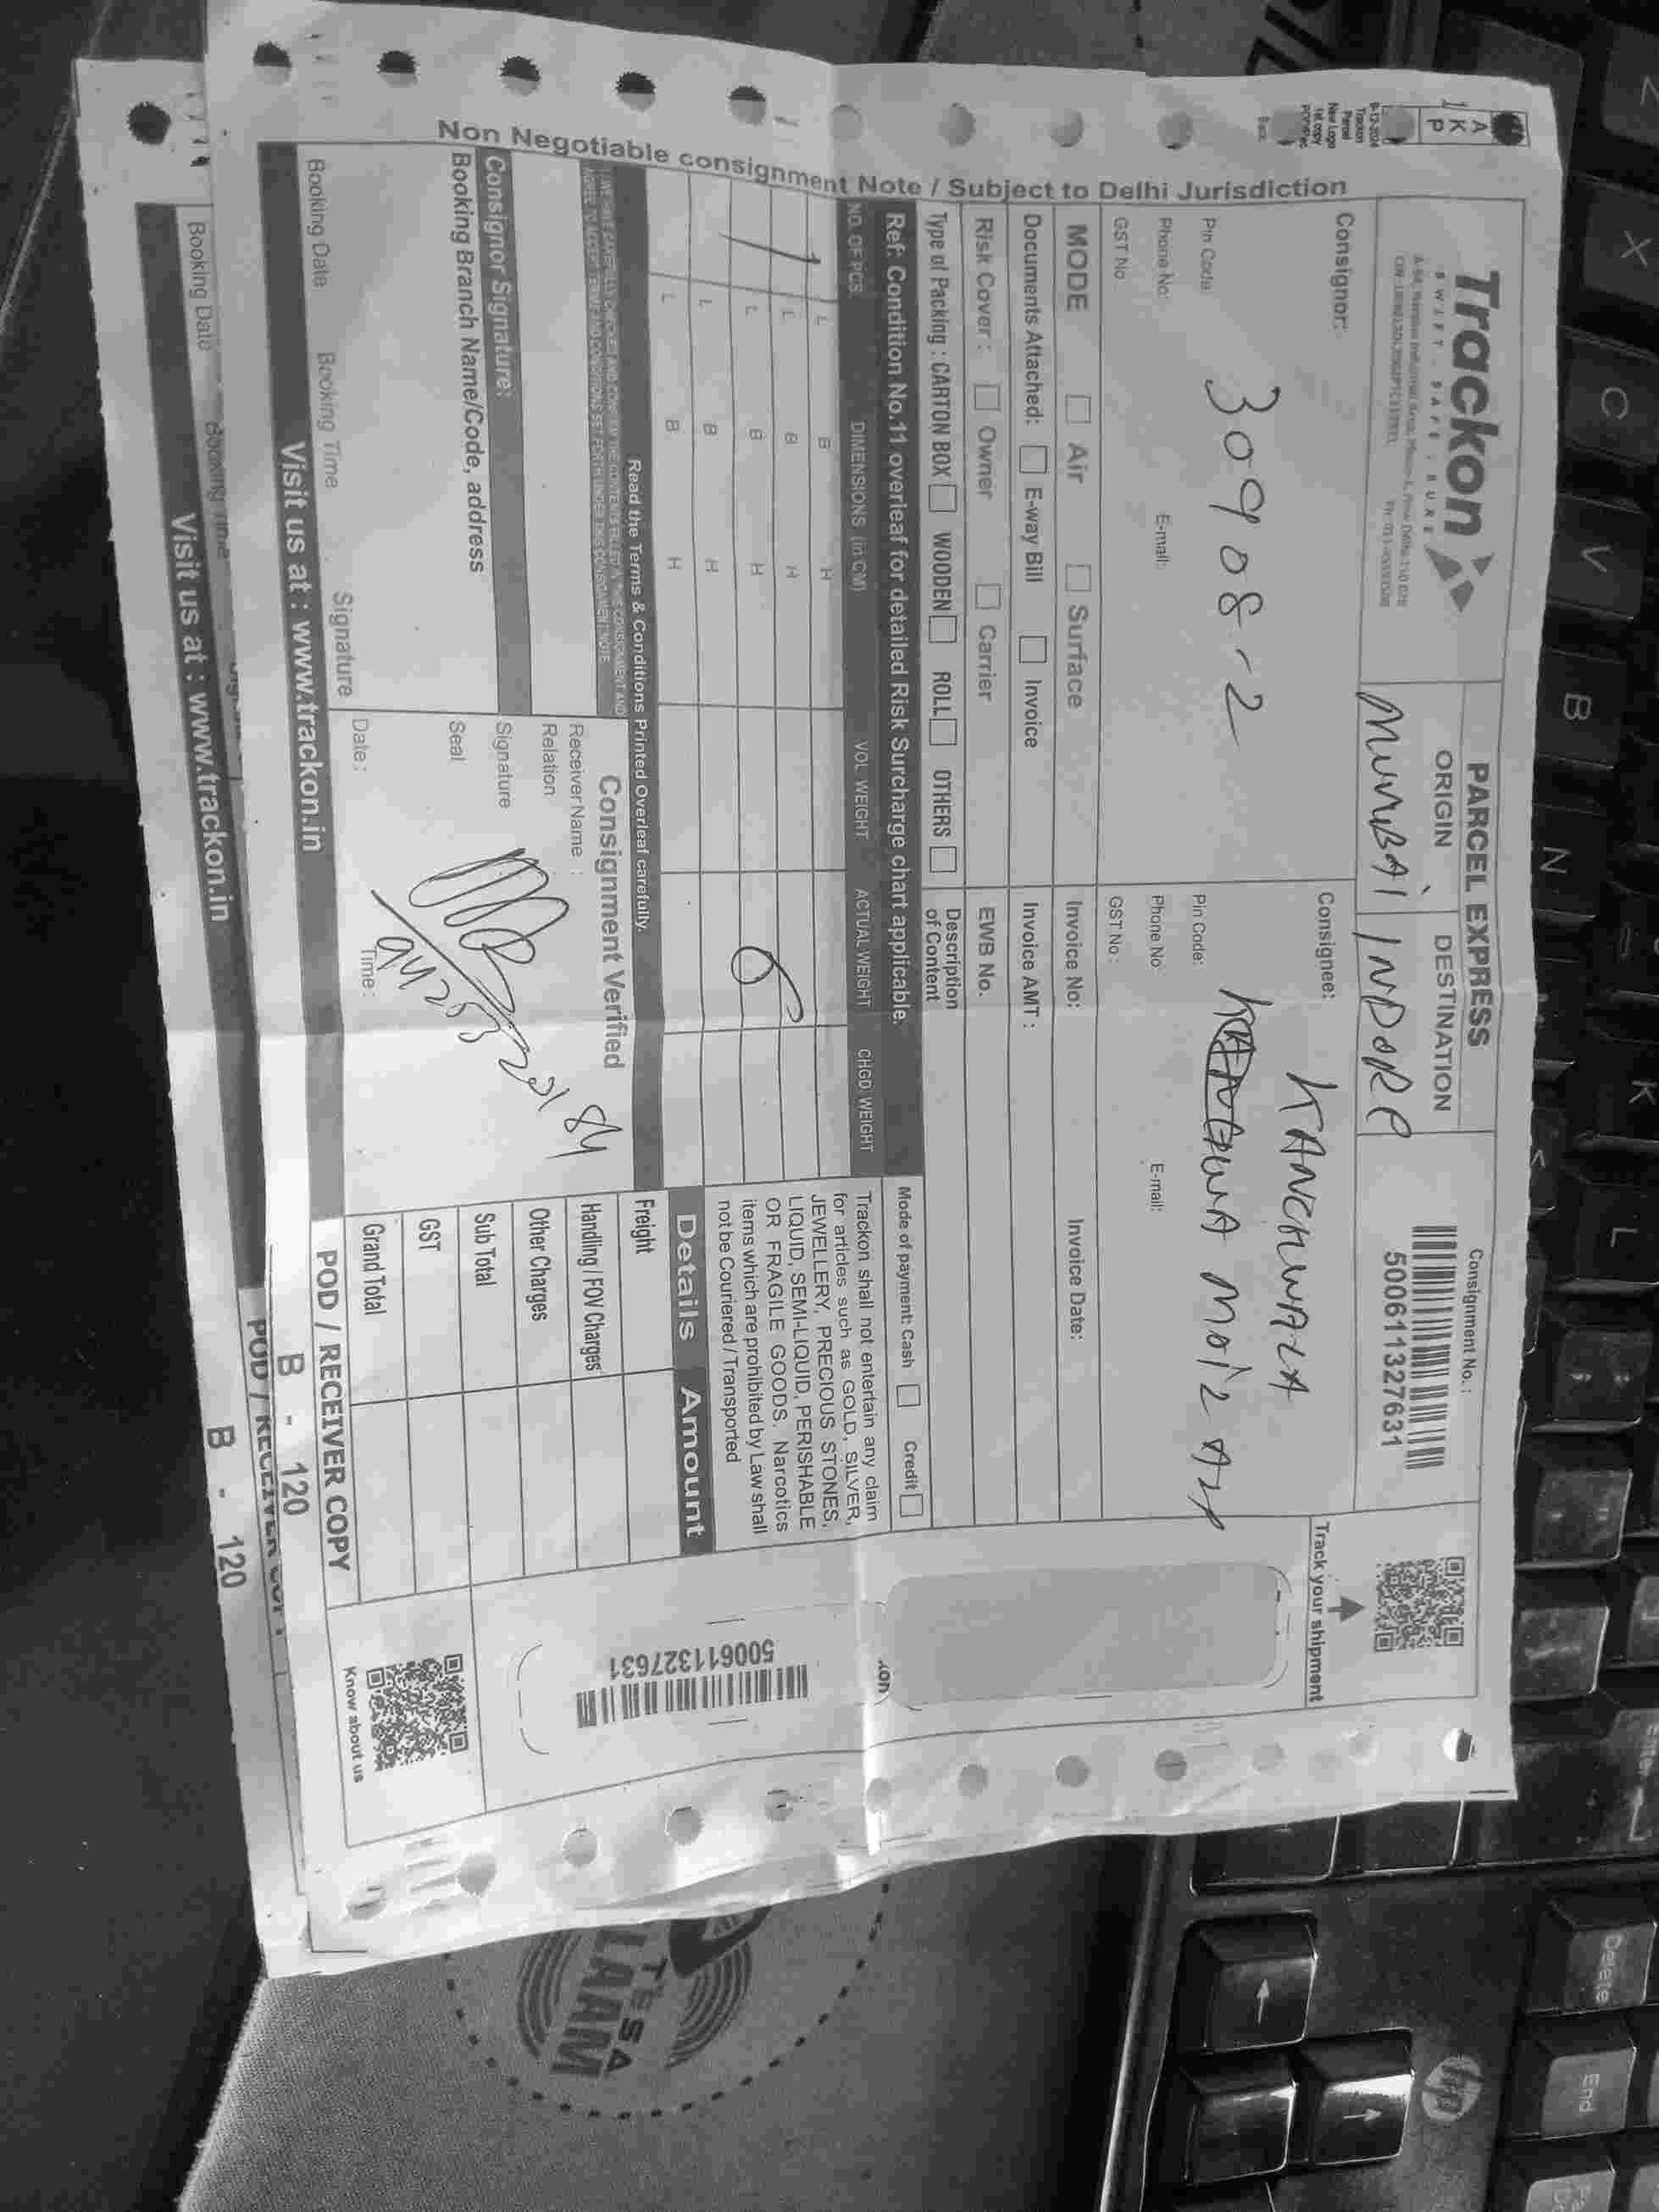 Trackon
SWIFT - SAFE - SURE
PARCEL EXPRESS
ORIGIN
DESTINATION
MUMBAI
INDORE
Consignment No.:
500611327631
Track your shipment
Consignor:
30908-2
Pin Code:
Phone No:
E-mail:
GST No
Consignee:
KANCHWALA
MOIZ
Pin Code:
Phone No
E-mail:
GST No:
MODE
Air
Surface
Invoice No:
Invoice Date:
Documents Attached:
E-way Bill
Invoice
Invoice AMT:
Risk Cover:
Owner
Carrier
EWB No.
Type of Packing: CARTON BOX
WOODEN
ROLL
OTHERS
Description
of Content
Mode of payment: Cash
Credit
Ref: Condition No.11 overleaf for detailed Risk Surcharge chart applicable.
NO. OF PCS.
DIMENSIONS (in CM)
VOL. WEIGHT
ACTUAL WEIGHT
CHGD WEIGHT
L B H
L B H
L B H
L B H
L B H
1
6
Trackon shall not entertain any claim
for articles such as GOLD, SILVER,
JEWELLERY, PRECIOUS STONES,
LIQUID, SEMI-LIQUID, PERISHABLE
OR FRAGILE GOODS. Narcotics
items which are prohibited by Law shall
not be Couriered / Transported
Details
Amount
Freight
Handling / FOV Charges
Other Charges
Sub Total
GST
Grand Total
Read the Terms & Conditions Printed Overleaf carefully.
Consignor Signature:
Booking Branch Name/Code, address
Booking Date
Booking Time
Signature
Consignment Verified
Receiver Name :
Relation
Signature
Seal
Date :
Time :
Visit us at : www.trackon.in
POD / RECEIVER COPY
B - 120
500611327631
Know about us
Non Negotiable consignment Note / Subject to Delhi Jurisdiction
Booking Date
Booking Time
Visit us at : www.trackon.in
POD / RECEIVER COPY
B - 120
TESA
LAAM
hp
Delete
End
Enter
Z
X
C
V
B
N
K
L